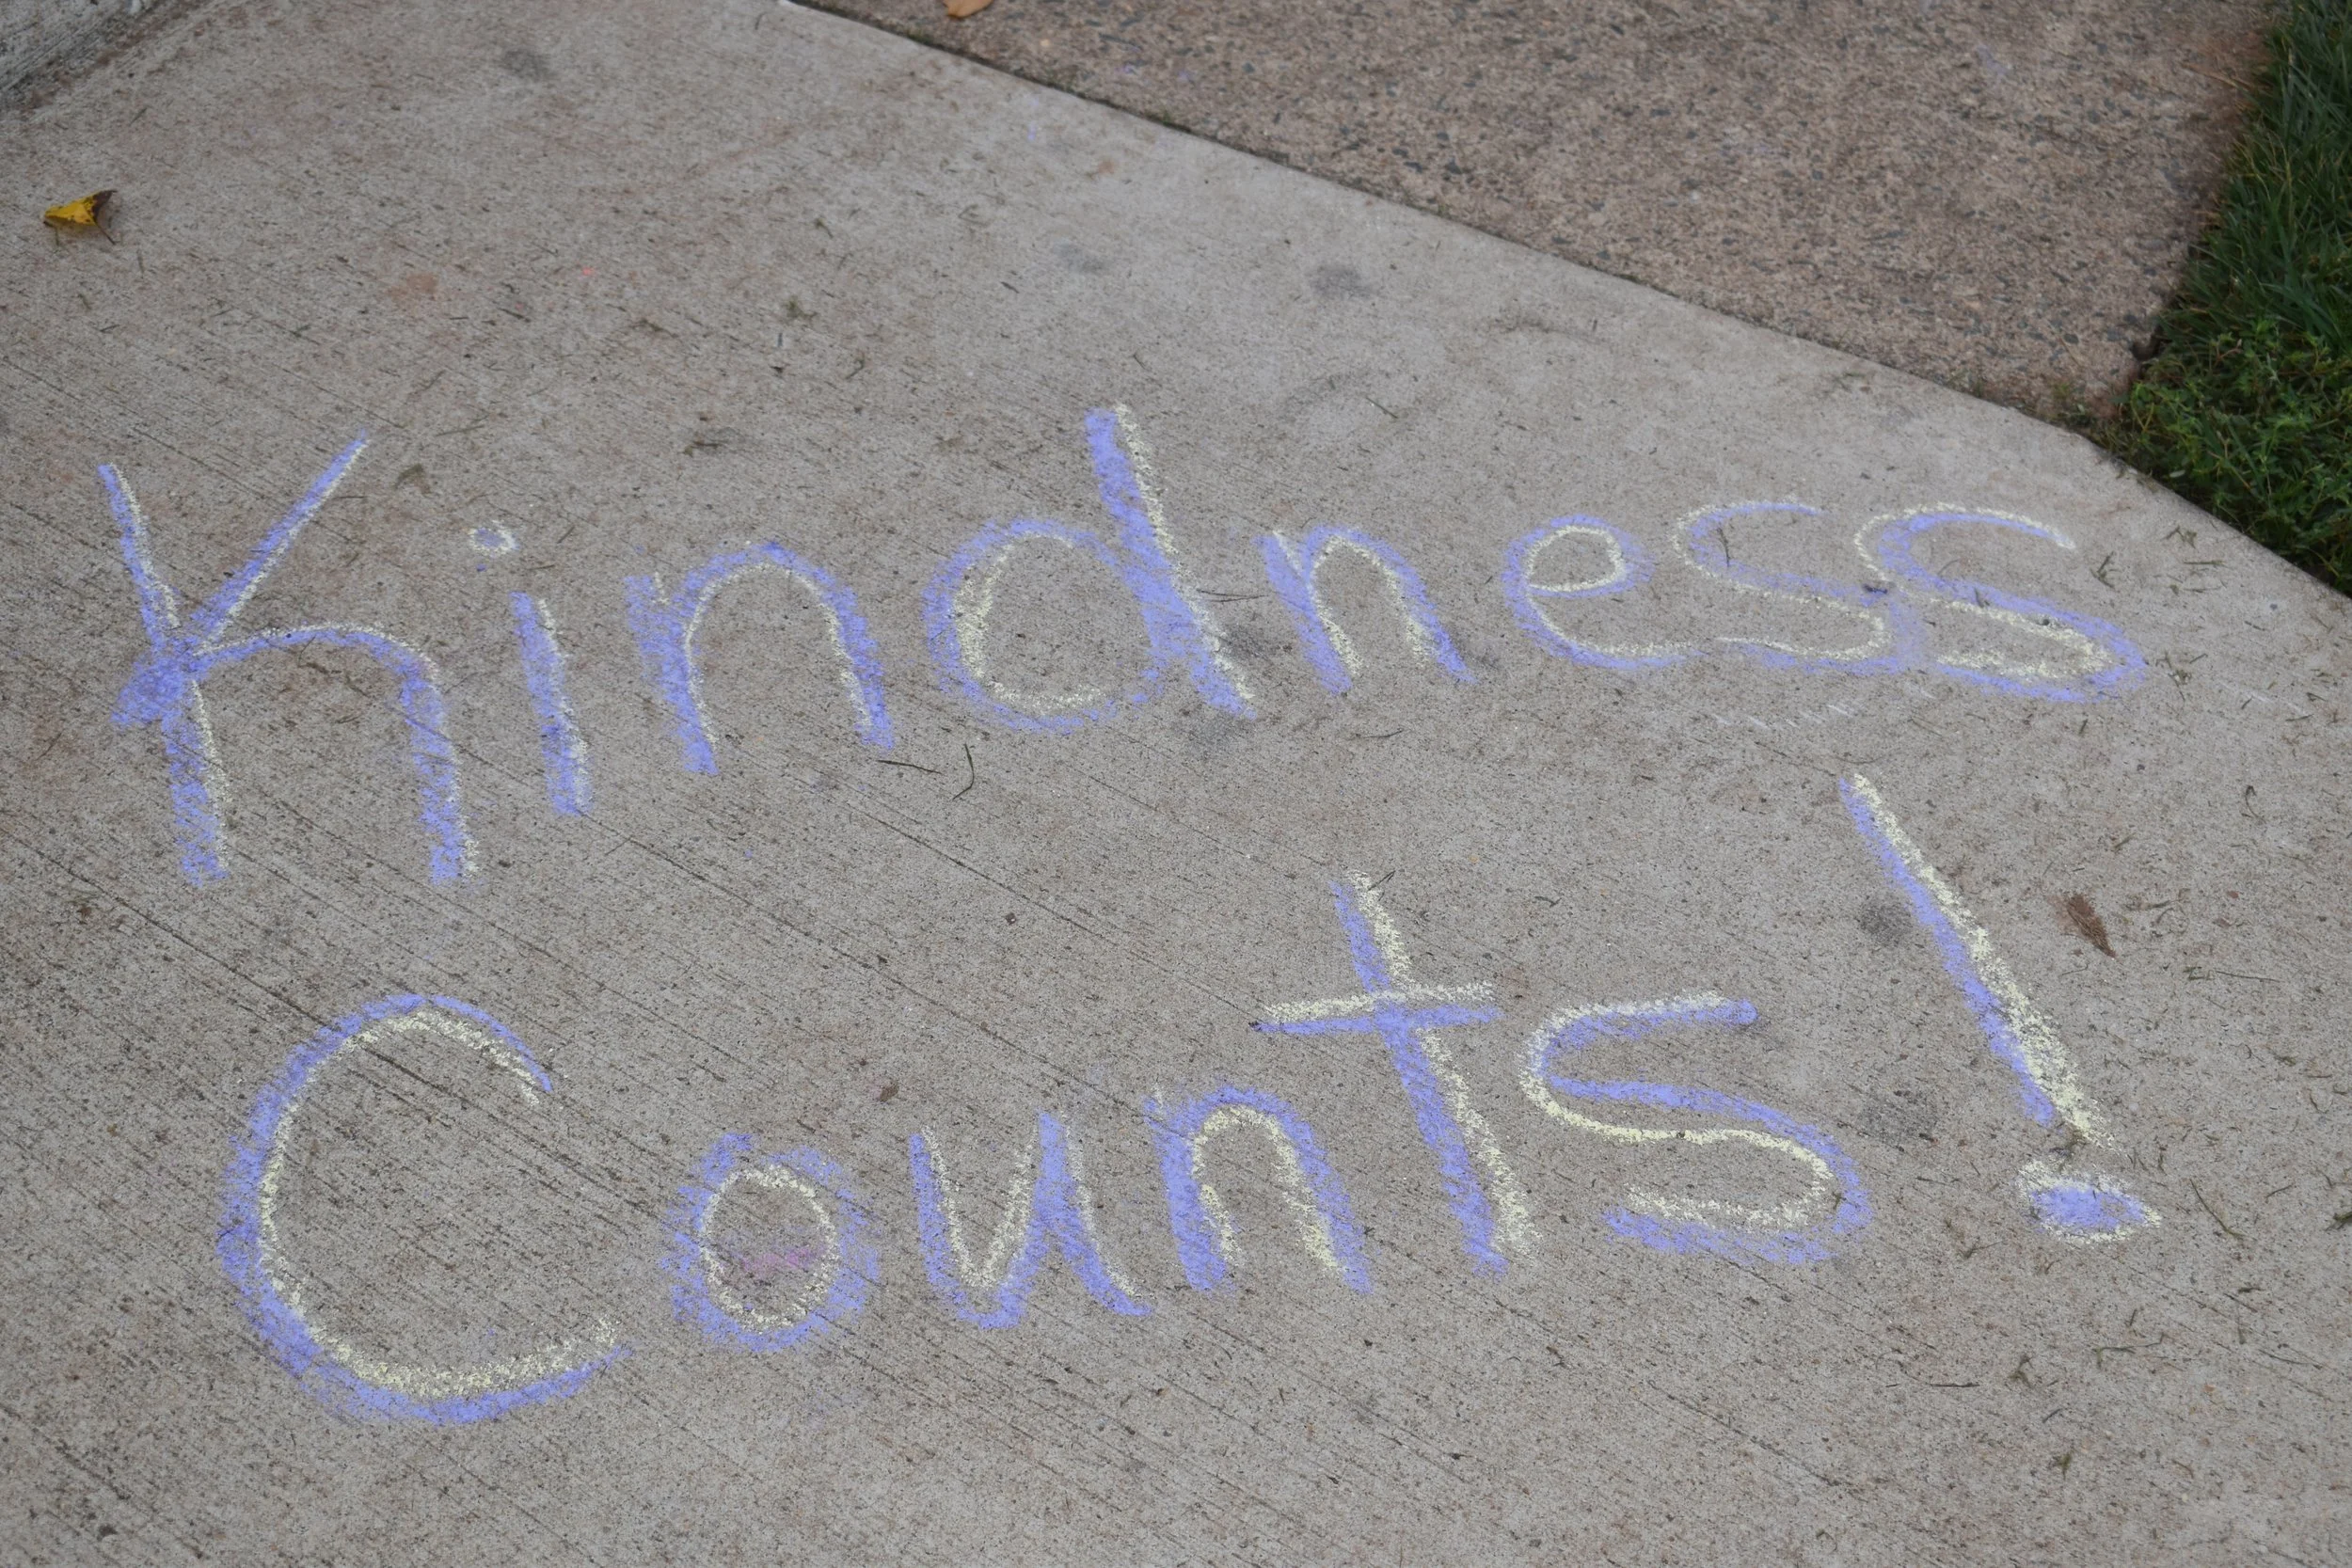 Kindness
Counts!